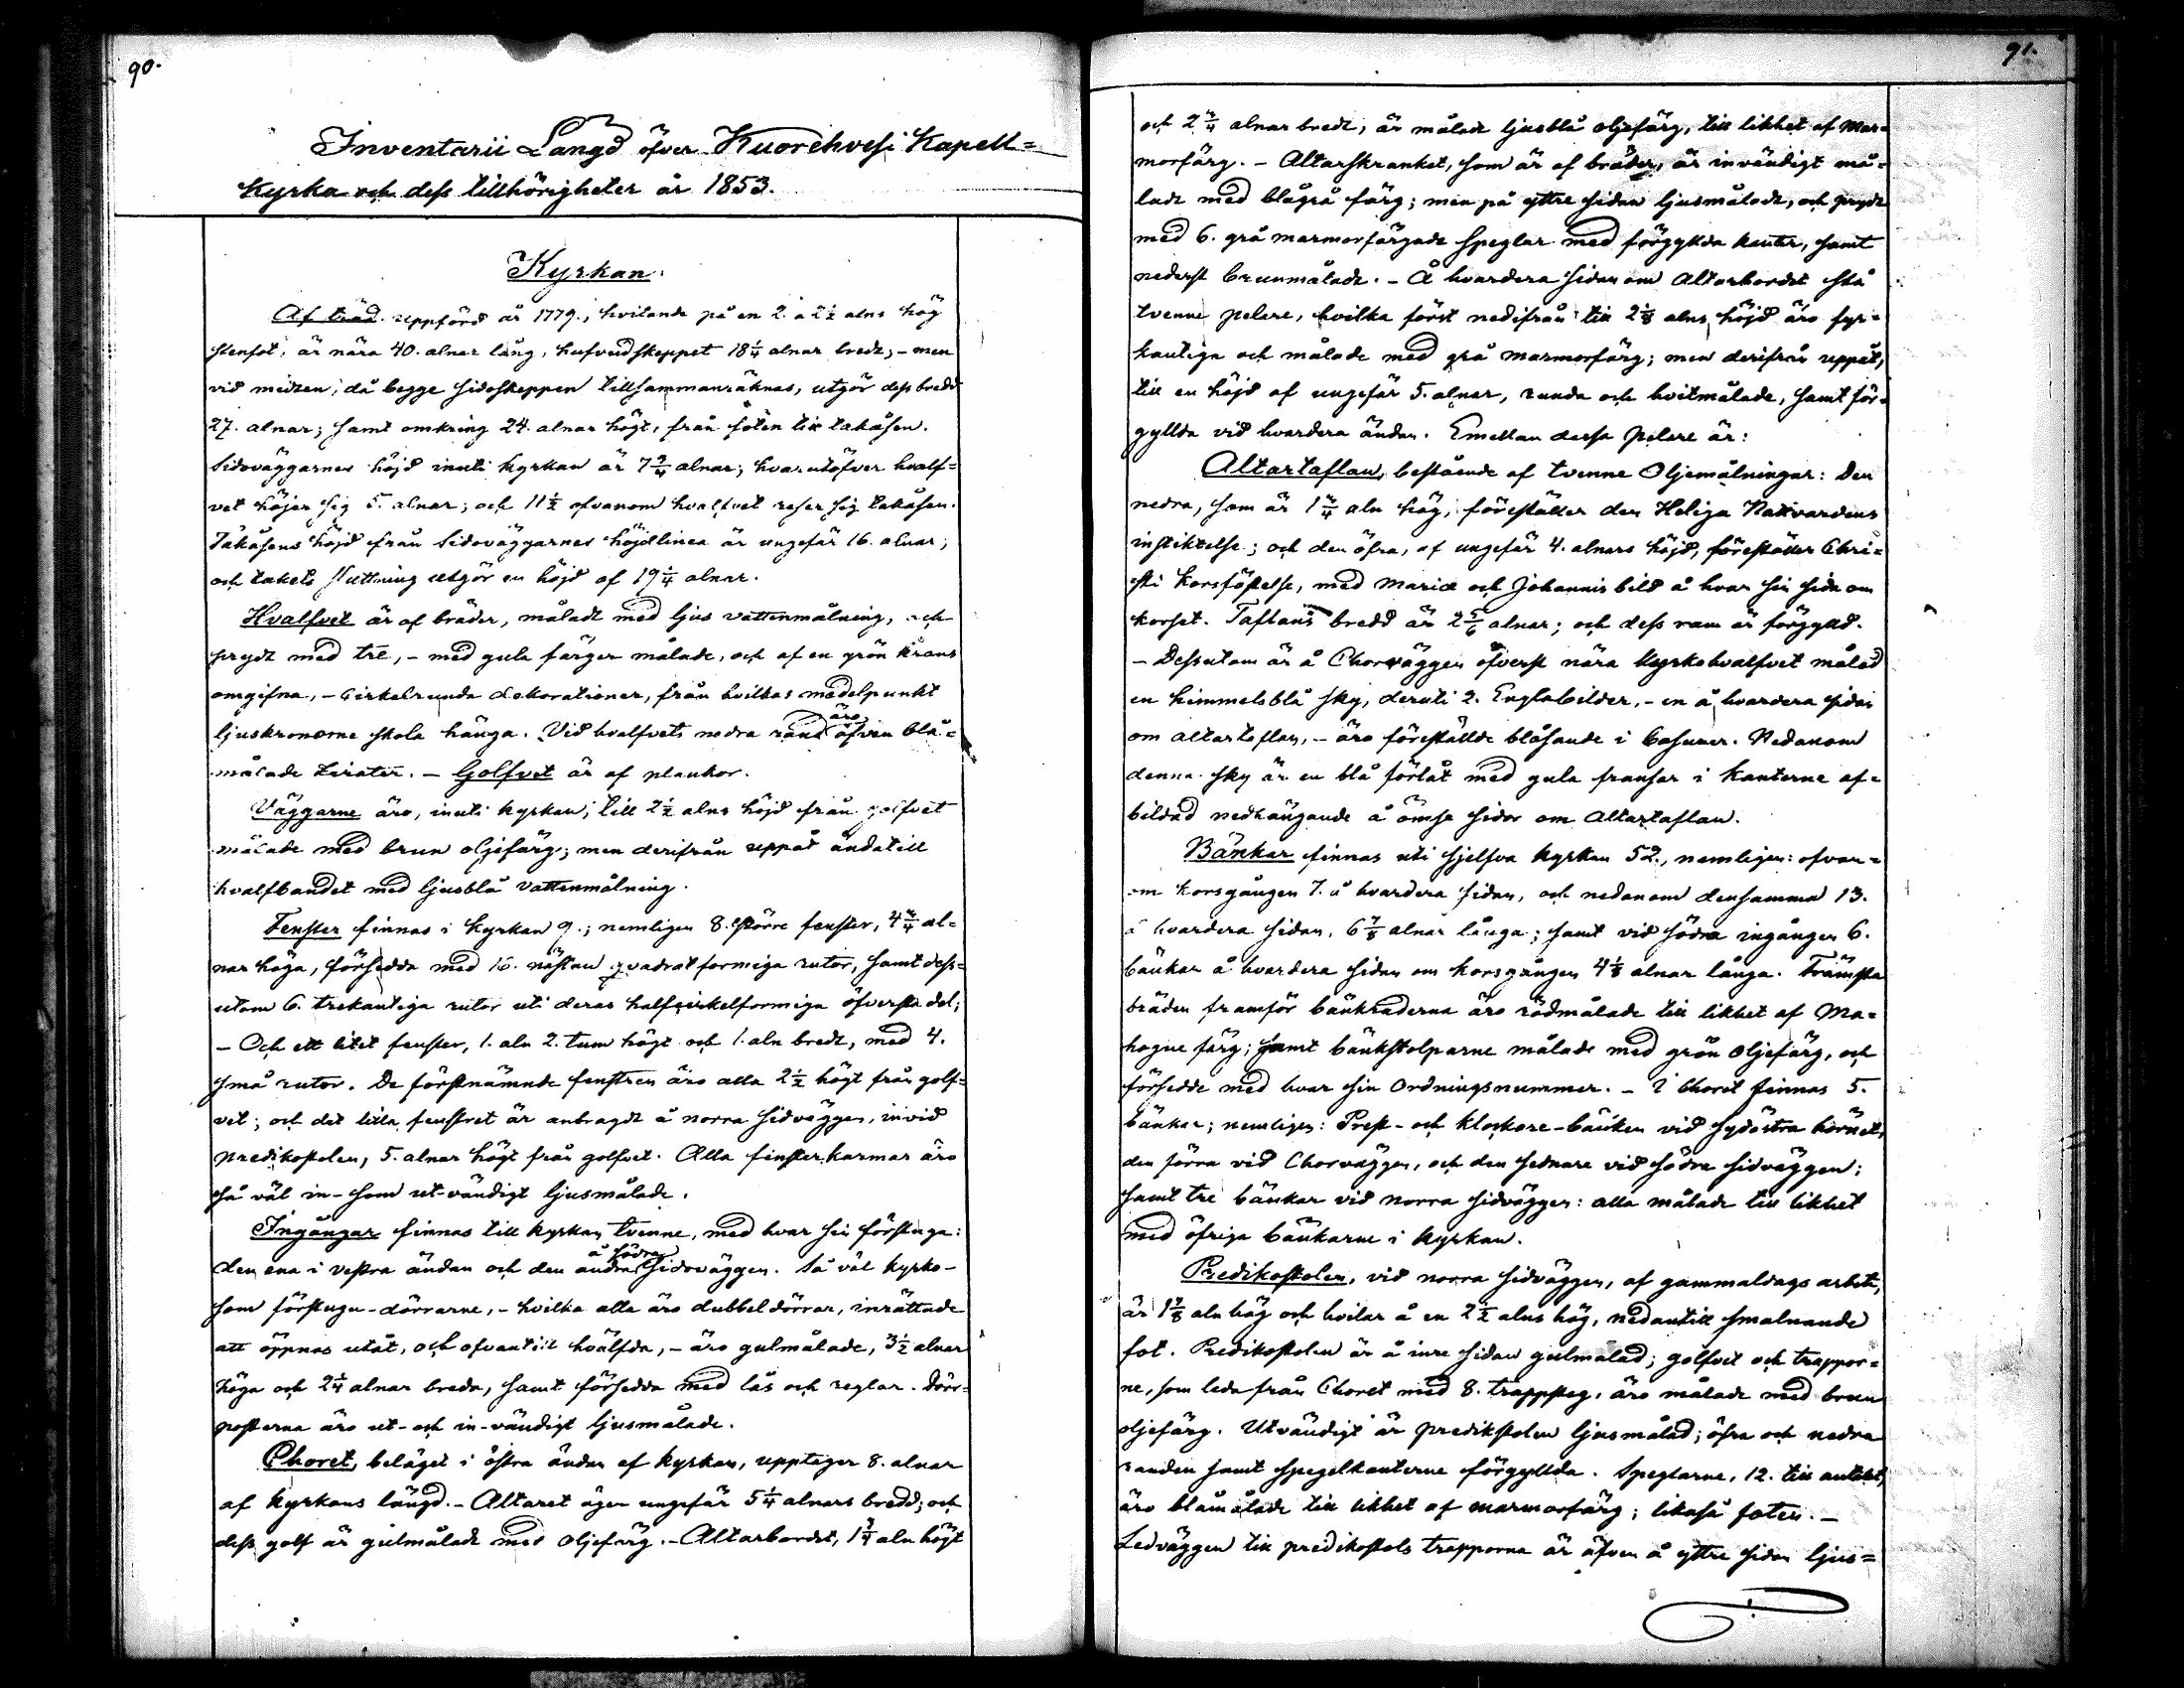 90.
Inventarii Längd öfver Kuorehvesi Kapell=
Kyrka och dess tillhörigheter år 1853.
Kyrkan.
Af träd uppförd år 1779., hvilande på en 2. à 2½ alns hög
stenfot, är nära 40. alnar lång, hufvudskeppet 18¼ alnar bredt; – men
vid midten, då begge sidoskeppen tillsammanräknas, utgör dess bredd
27. alnar; samt omkring 24. alnar högt, från foten till takåsen.
Sidoväggarnes höjd inuti kyrkan är 7¾ alnar; hvarutöfver hvalf=
vet höjer sig 5. alnar; och 11½ ofvanom hvalfvet reser sig takåsen.
Takåsens höjd från Sidoväggarnes höjdlinea är ungefär 16. alnar;
och takets sluttning utgör en höjd af 19¼ alnar.
Hvalfvet är af bräder, måladt med ljus vattenmålning, och
prydt med tre, – med gula färger målade, och af en grön krans
omgifna, – Cirkelrunda dekorationer, från hvilkas medelpunkt
ljuskronorne skola hänga. Vid hvalfvets nedra rand äro äfven blå=
målade zirater. – Golfvet är af plankor.
Väggarne äro, inuti kyrkan, till 2½ alns höjd från golfvet
målade med brun oljefärg; men derifrån uppåt ända till
hvalfbandet med ljusblå vattenmålning.
Fenster finnas i kyrkan 9.; nemligen 8. större fenster, 4¾ al=
nar höga, försedda med 16. nästan qvadratformiga rutor, samt dess=
utom 6. trekantiga rutor uti deras halfcirkelformiga öfversta del;
– Och ett litet fenster, 1. aln 2. tum högt och 1. aln bredt, med 4.
små rutor. De förstnämnde fenstren äro alla 2½ högt från golf=
vet; och det lilla fenstret är anbragdt å norra Sidväggen, invid
predikostolen, 5. alnar högt från golfvet. Alla fensterkarmar äro
så väl in- som ut-vändigt ljusmålade.
Ingångar finnas till kyrkan tvenne, med hvar sin förstuga:
den ena i vestra ändan och den andra å södra Sidoväggen. Så väl kyrko-
som förstugu-dörrarne, – hvilka alla äro dubbeldörrar, inrättade
att öppnas utåt, och ofvantill hvälfda, – äro gulmålade, 3½ alnar
höga och 2¼ alnar breda, samt försedda med lås och reglar. Dörr=
posterna äro ut- och in-vändigt ljusmålade.
Choret, beläget i östra ändan af kyrkan, upptager 8. alnar
af kyrkans längd. – Altaret äger ungefär 5¼ alnars bredd; och
dess golf är gulmåladt med Oljefärg. – Altarbordet, 1¾ aln högt
91.
och 2¾ alnar bredt, är måladt ljusblå oljefärg, till likhet af Mar=
morfärg. – Altarskranket, som är af bräder, är invändigt må=
ladt med blågrå färg; men på yttre sidan ljusmåladt, och prydt
med 6. grå marmorfärgade Speglar med förgyllda kanter, samt
nederst brunmåladt. – Å hvardera Sidan om Altarbordet stå
tvenne pelare, hvilka först nedifrån till 2⅛ alns höjd äro fyr=
kantiga och målade med grå marmorfärg; men derifrån uppåt,
till en höjd af ungefär 5. alnar, runda och hvitmålade, samt för=
gyllda vid hvardera ändan. Emellan dessa pelare är:
Altartaflan, bestående af tvenne Oljemålningar: Den
nedra, som är 1¾ aln hög, föreställer den Heliga Nattvardens
instiktelse; och den öfra, af ungefär 4. alnars höjd, föreställer Chri=
sti Korsfästelse, med Mariæ och Johannis bild å hvar sin sida om
korset. Taflans bredd är 2⅚ alnar; och dess ram är förgylld.
– Dessutom är å Chorväggen öfverst nära kyrkohvalfvet målad
en himmelsblå sky, deruti 2. Englabilder, – en å hvardera sidan
om altartaflan, – äro föreställde blåsande i basuner. Nedanom
denna sky är en blå förlåt med gula fransar i kanterne af=
bildad nedhängande å ömse sidor om Altartaflan.
Bänkar finnas uti sjelfva kyrkan 52., nemligen: ofvan=
om korsgången 7. å hvardera sidan, och nedanom densamma 13.
å hvardera sidan, 6⅞ alnar långa; samt vid södra ingången 6.
bänkar å hvardera sidan om korsgången 4⅛ alnar långa. Främsta
bräden framför bänkraderna äro rödmålade till likhet af Ma=
hogne färg; samt bänkstolparne målade med grön Oljefärg, och
försedde med hvar sin Ordningsnummer. – I Choret finnas 5.
bänkar; nemligen: Prest- och klockare-bänken vid sydöstra hörnet,
den förra vid Chorväggen, och den sednare vid södra sidväggen;
samt tre bänkar vid norra sidväggen: alla målade till likhet
med öfriga bänkarne i kyrkan.
Predikostolen, vid norra sidväggen, af gammaldags arbete,
är 1⅞ aln hög och hvilar å en 2½ alns hög, nedantill smalnande
fot. Predikostolen är å inre sidan gulmålad; golfvet och trappor=
ne, som leda från Choret med 8. trappsteg, äro målade med brun
oljefärg. Utvändigt är predikstolen ljusmålad; öfra och nedra
randen samt spegelkanterne förgyllda. Speglarne, 12. till antalet,
äro blåmålade till likhet af marmorfärg; likaså foten. –
Ledväggen till predikostols trapporna är äfven å yttre sidan ljus=